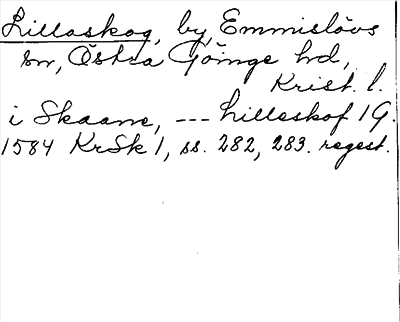 Lillaskog, by, Emmislövs
sn, Östra Göinge hd,
Krist. l.
i Skaane, --- Lilleskof 1 G.
1584 KrSk 1, ss. 282, 283. regest.